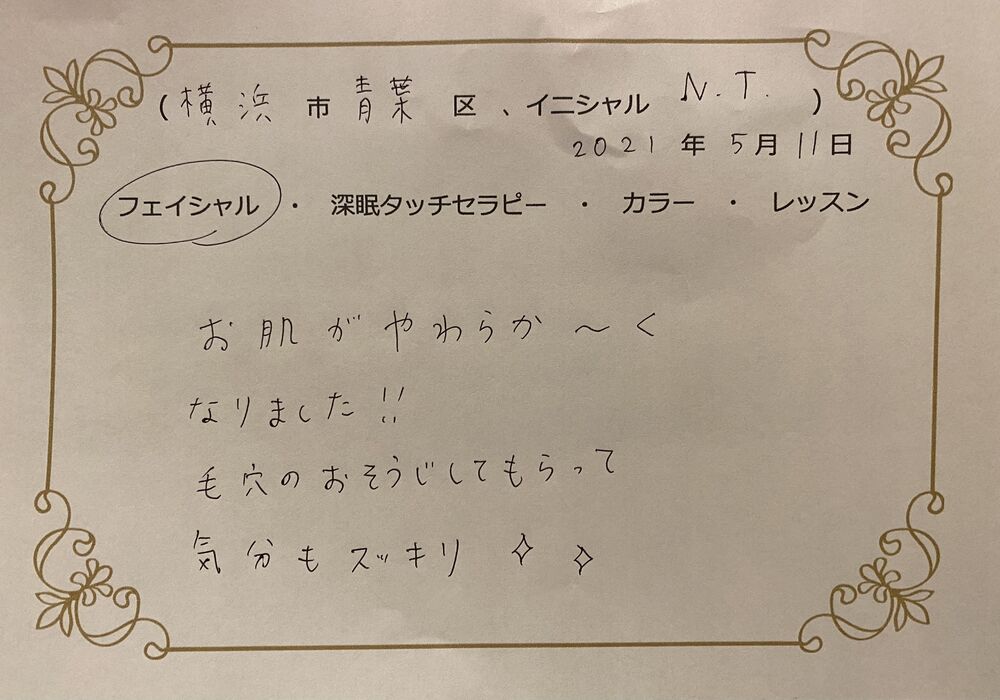 (横浜市青葉区、イニシャル N.T.)
2021年5月11日
フェイシャル ・ 深眠タッチセラピー ・ カラー ・ レッスン
お肌がやわらか〜く
なりました!!
毛穴のおそうじしてもらって
気分もスッキリ✧✧